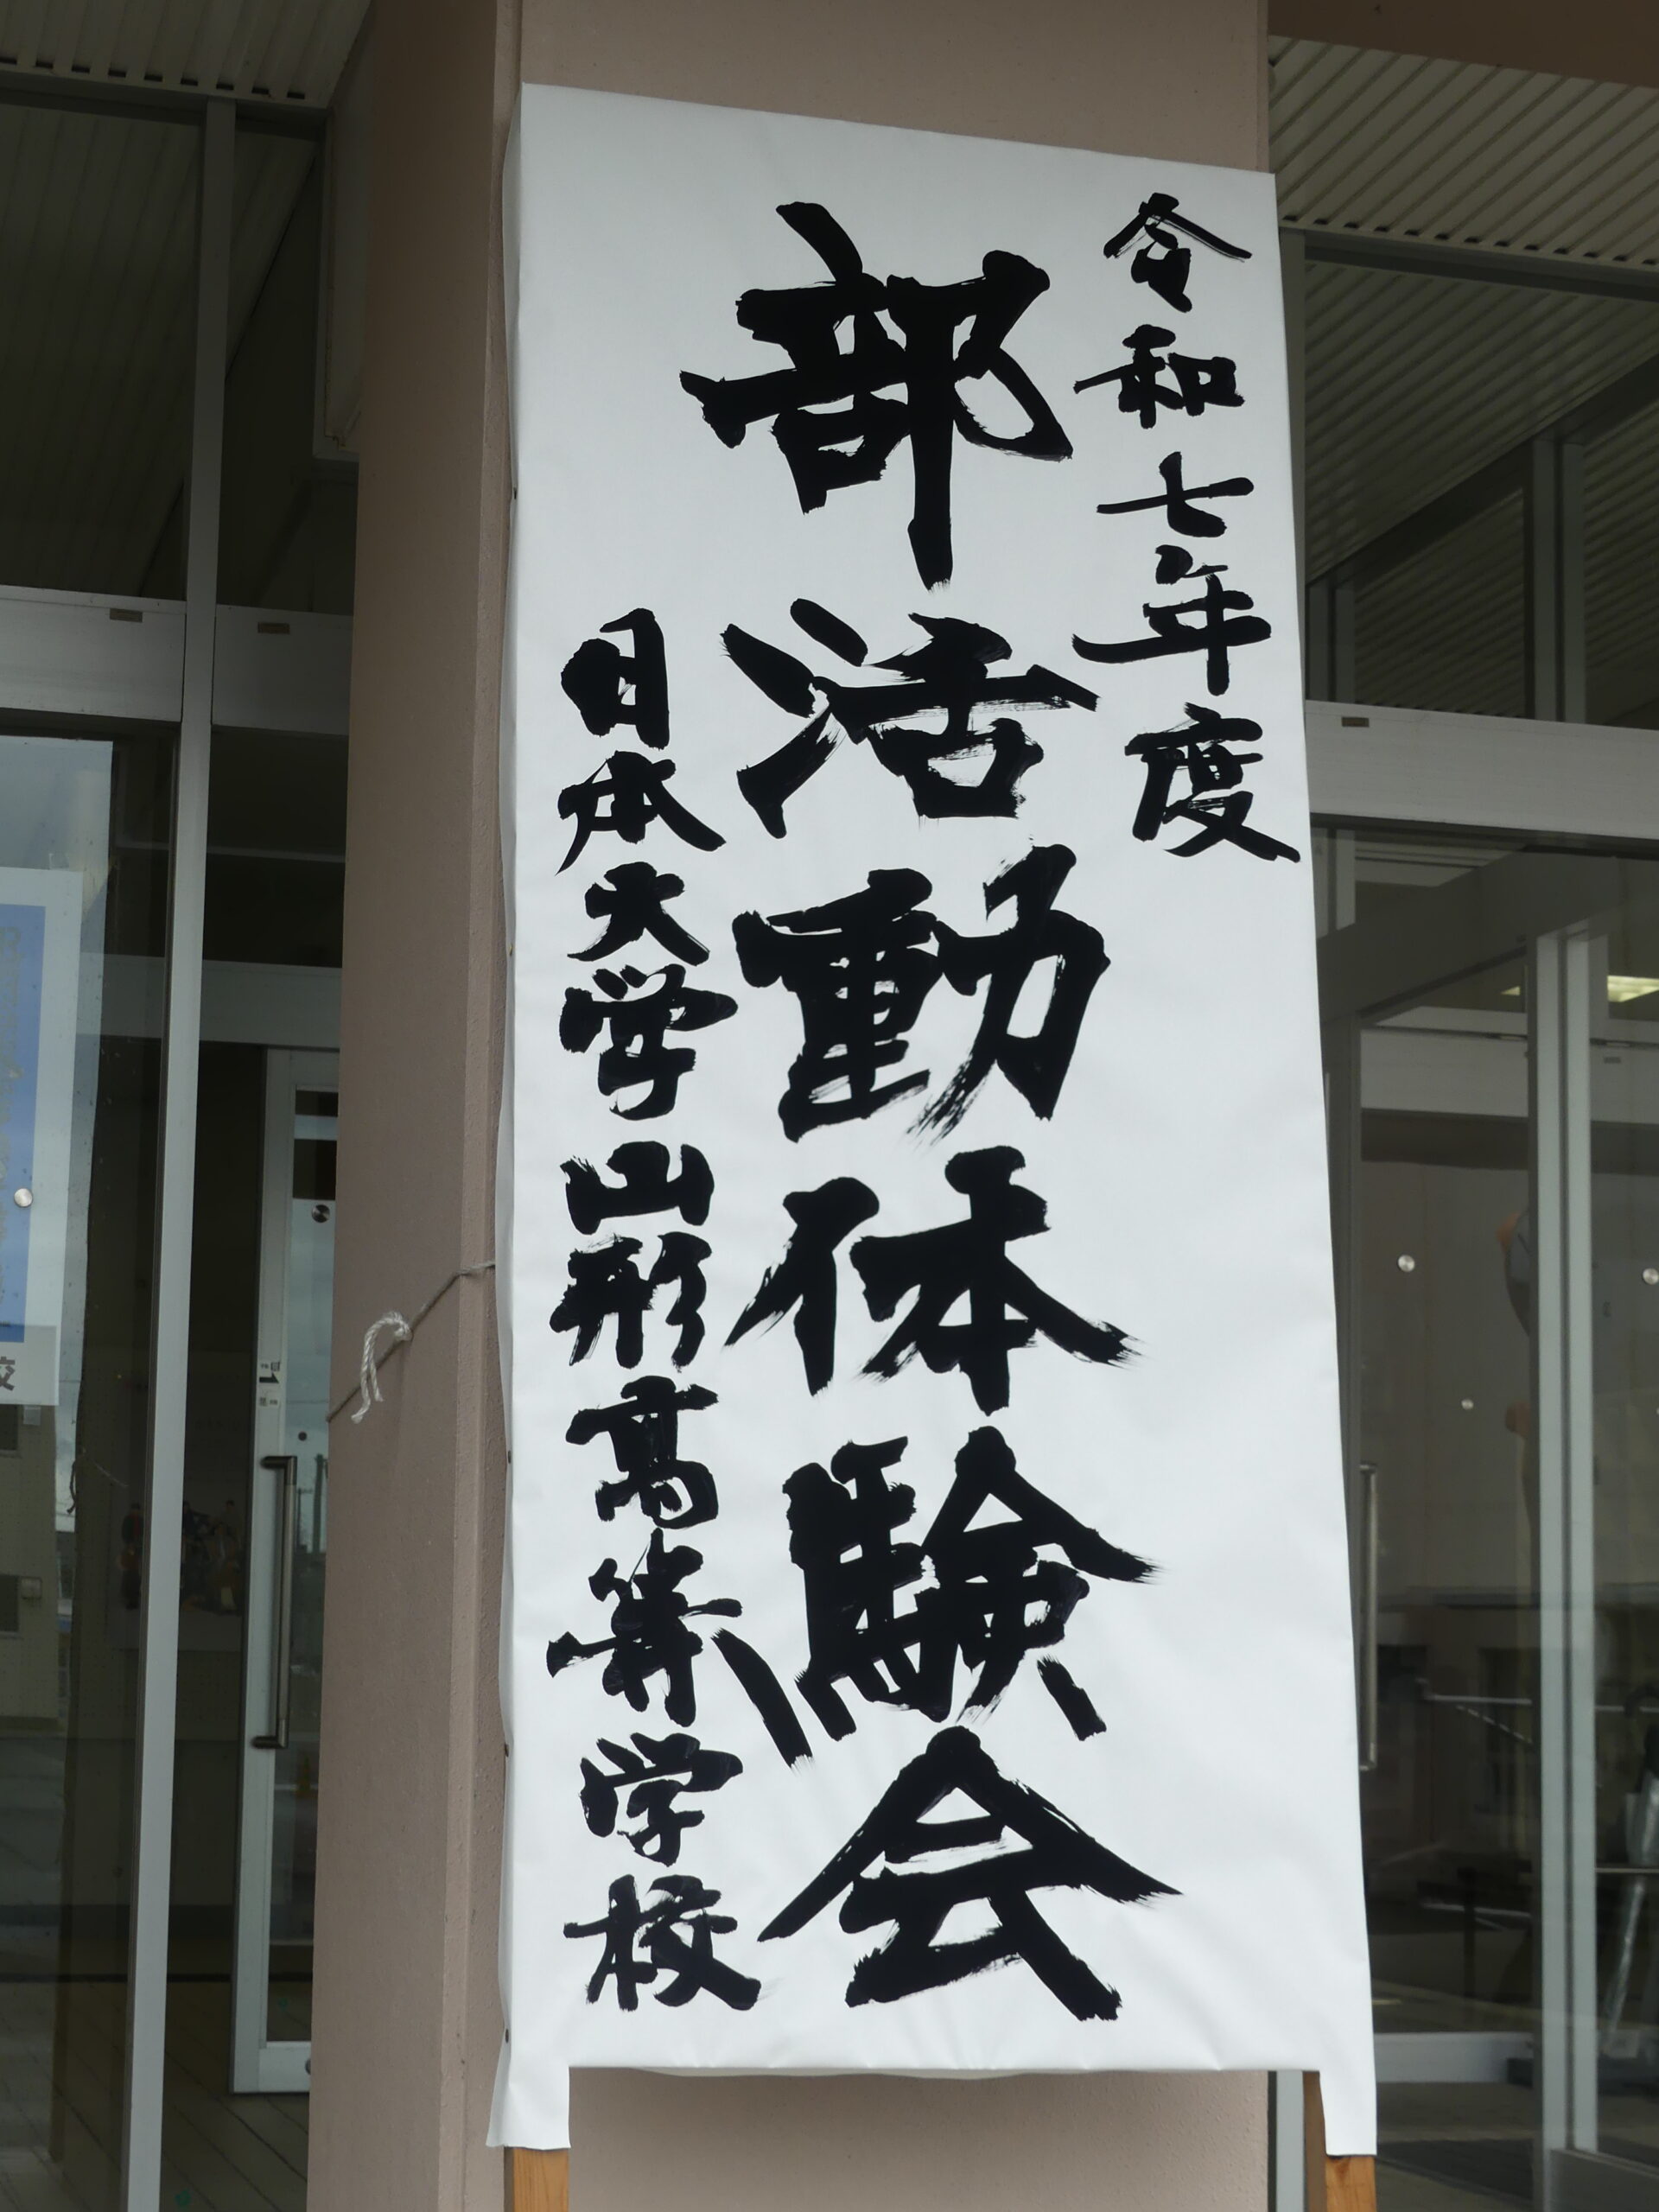 令和七年度
部活動体験会
日本大学山形高等学校
校